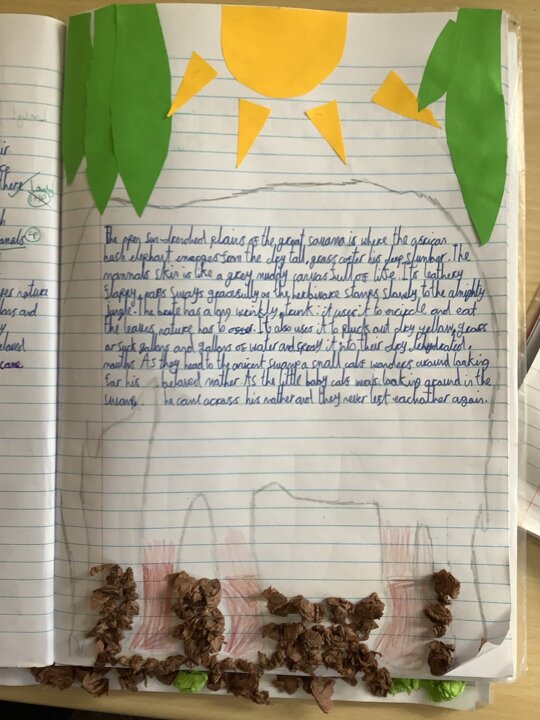 The open sun-drenched plains of the great savana is where the african
bush elephant emerges from the dry tall, grass after his deep slumber. The
mammals skin is like a grey muddy canvas full of life. Its leathery
flappey, ears sways gracefully as the herbivore stamps slowly, to the almighty
jungle. The beaute has a long wrinkly trunk: it uses it to encircle and eat
the leaves, nature has to offer. It also uses it to pluck out dry yellow, grass
or suck gallons and gallons of water and spray it into their dry, dehydrated,
mouths. As they head to the ancient swamp a small calf wonders around looking
for his beloved mother. As the little baby calf was looking around in the
swamp, he came across his mother and they never left eachother again.
ir
there
h
mamals
nature
and
beloved
came